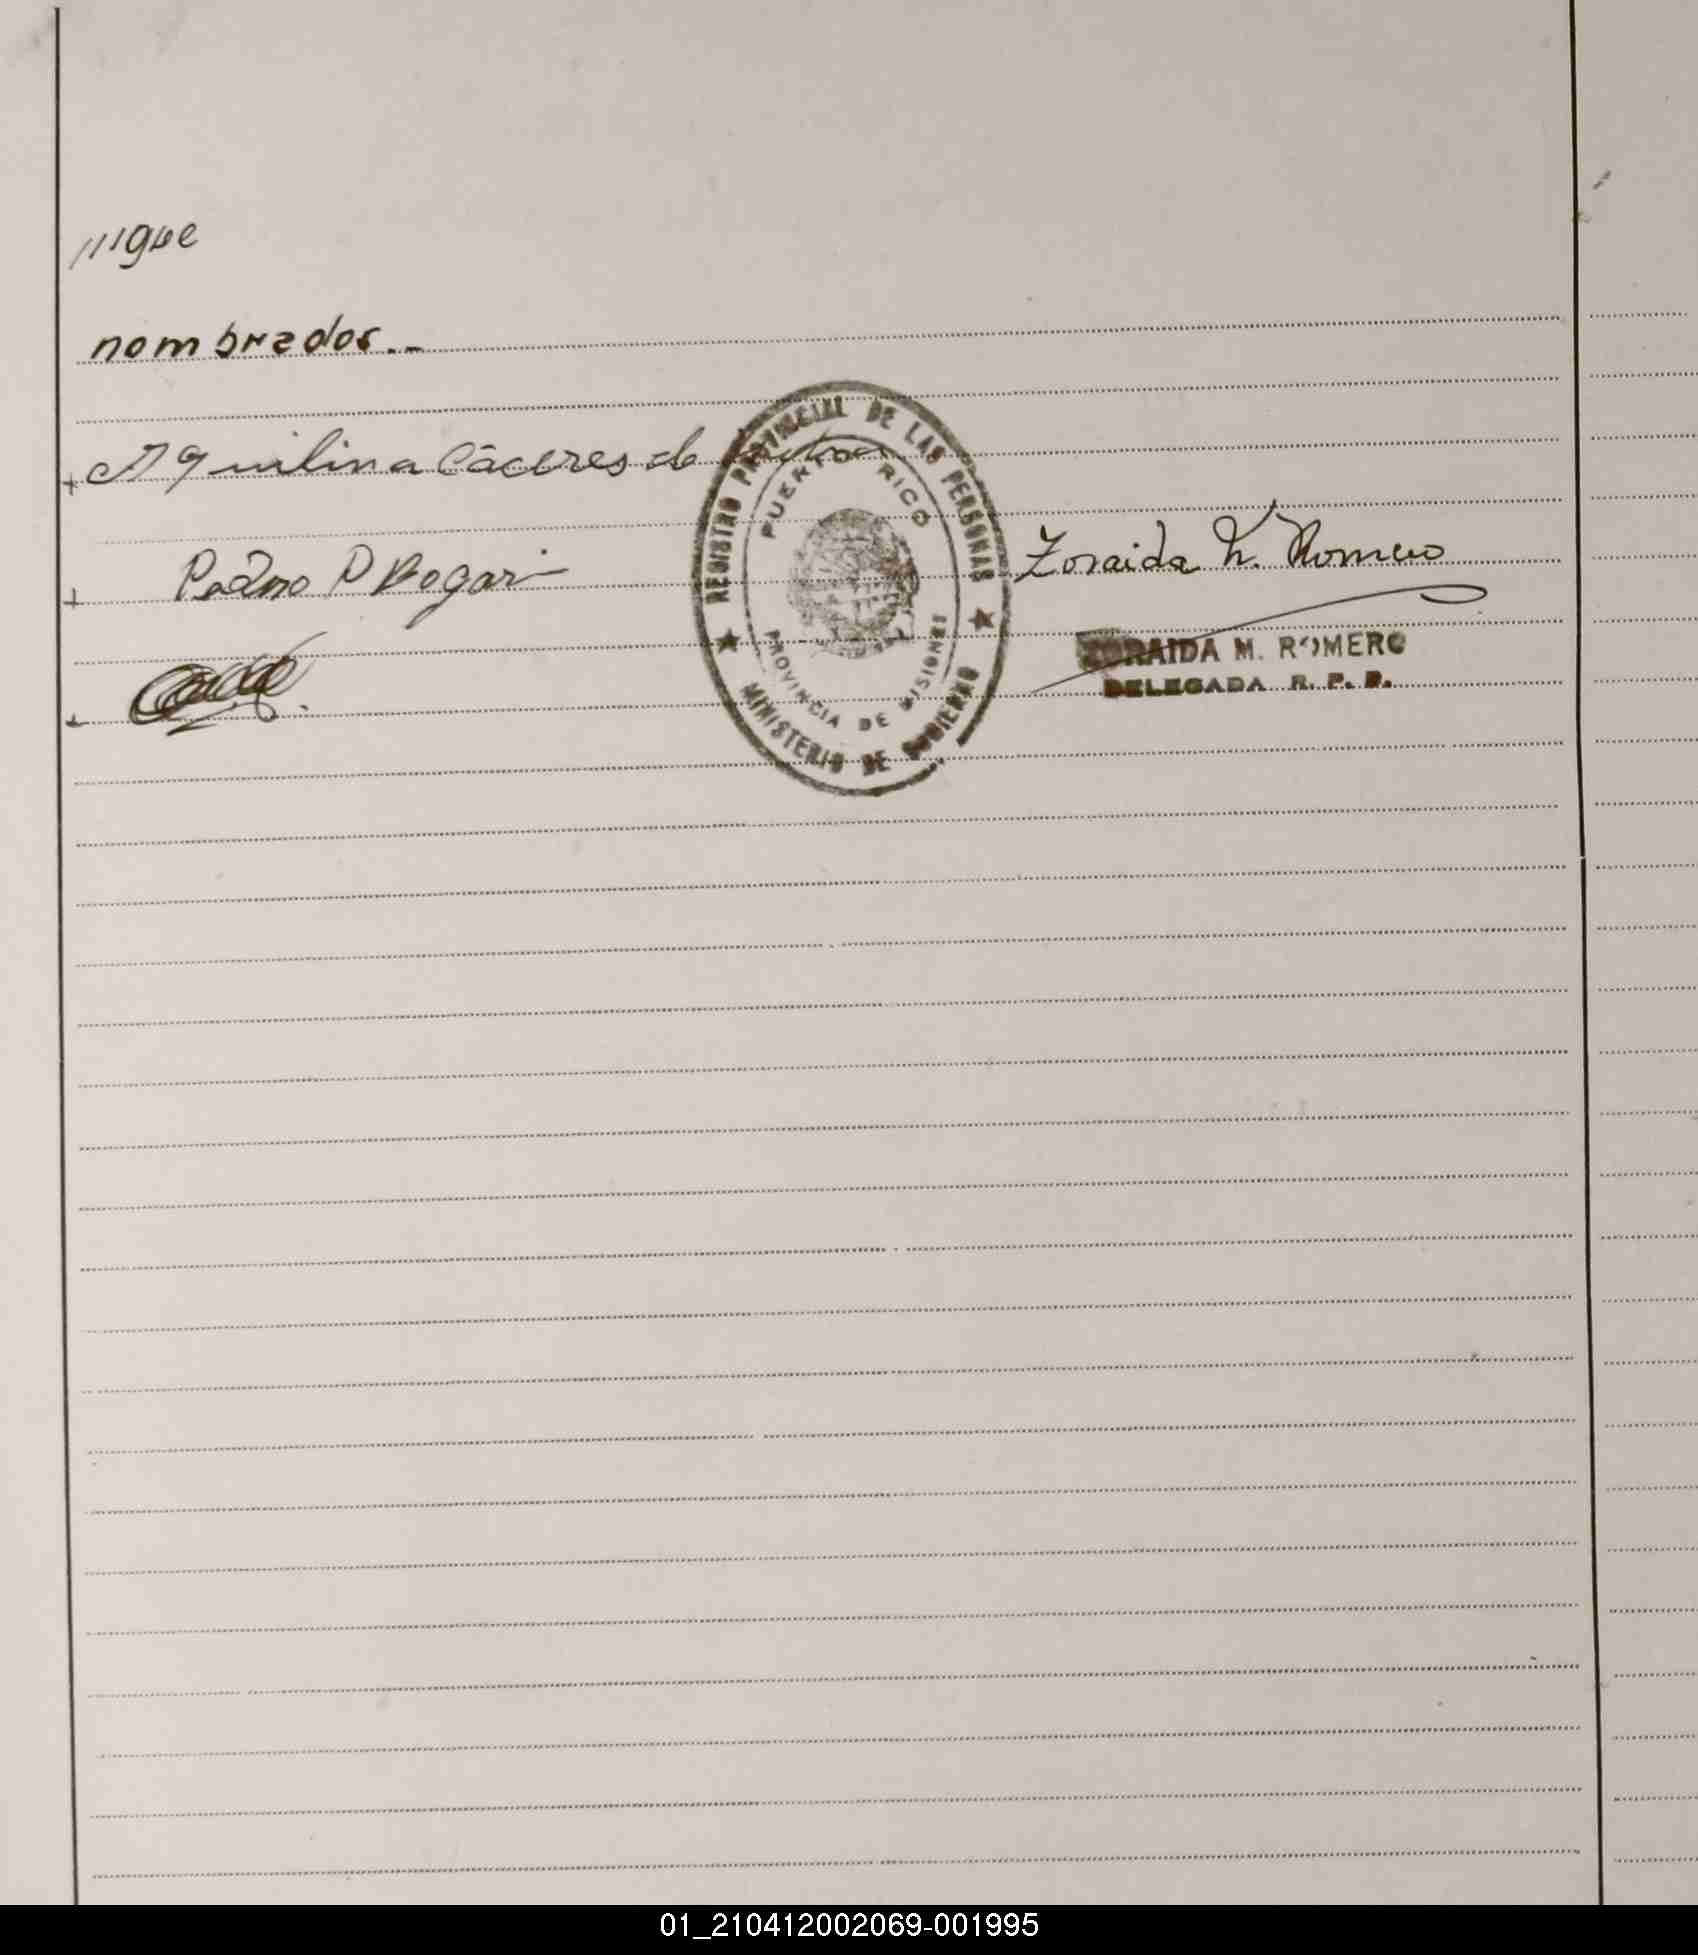 ///gue
nombrados.-
Aquilina Cáceres de
Pedro P Bogari
REGISTRO PROVINCIAL DE LAS PERSONAS
PUERTO RICO
PROVINCIA DE MISIONES
MINISTERIO DE GOBIERNO
Zoraida M. Romero
ZORAIDA M. ROMERO
DELEGADA R. P. P.
01_210412002069-001995